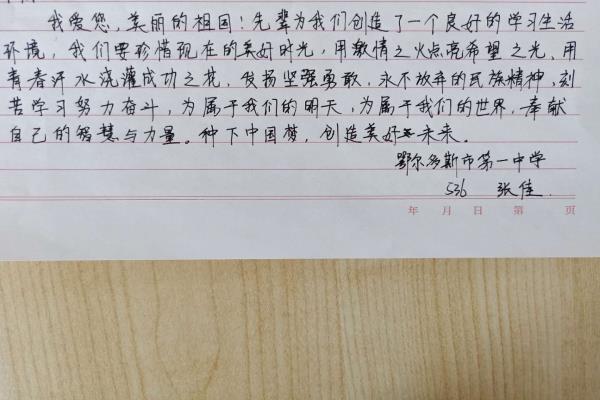 我爱您,美丽的祖国!先辈为我们创造了一个良好的学习生活
环境,我们要珍惜现在的美好时光,用激情之火点亮希望之光、用
青春汗水浇灌成功之花,发扬坚强勇敢,永不放弃的民族精神,刻
苦学习努力奋斗,为属于我们的明天,为属于我们的世界,奉献
自己的智慧与力量。种下中国梦,创造美好未来。
鄂尔多斯市第一中学
536 张佳
年 月 日 第 页